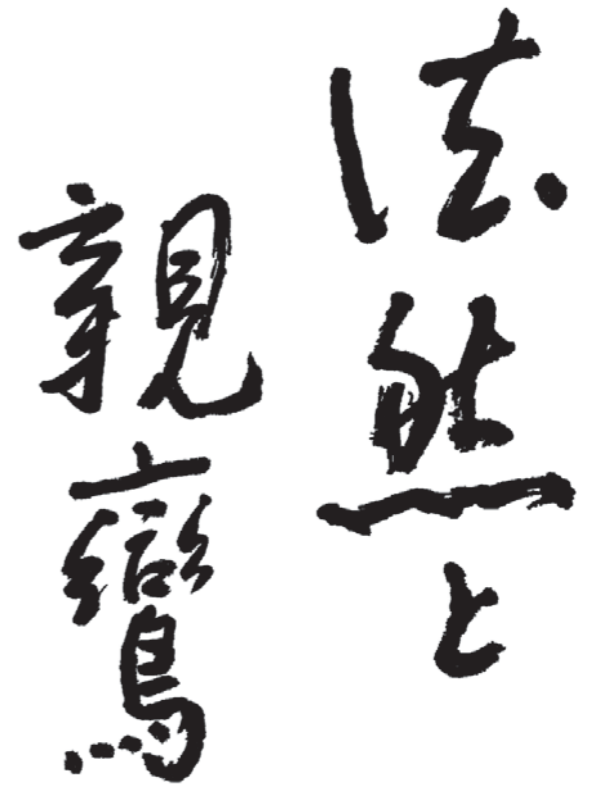 法然と
親鸞